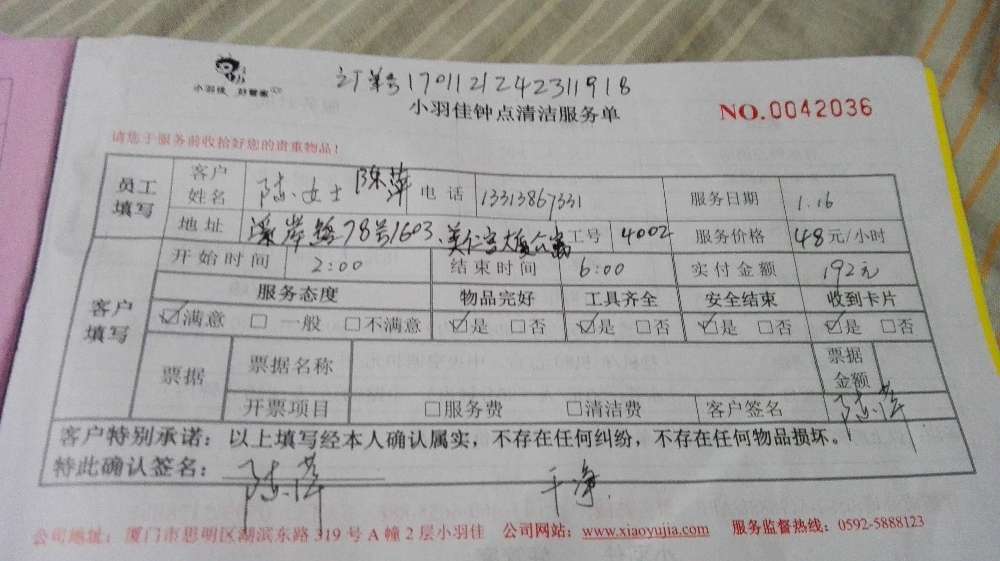 订单号170112124231​1918
小羽佳 好管家
小羽佳钟点清洁服务单
NO.0042036
请您于服务前收拾好您的贵重物品!
员工填写 客户姓名 陈女士 陈萍 电话 13313867331 服务日期 1.16
地址 溪岸路78号1603、美仁宫大厦 工号 4002 服务价格 48元/小时
客户填写 开始时间 2:00 结束时间 6:00 实付金额 192元
服务态度 物品完好 工具齐全 安全结束 收到卡片
☑满意 □一般 □不满意 ☑是 □否 ☑是 □否 ☑是 □否 ☑是 □否
票据 票据名称 票据金额
开票项目 □服务费 □清洁费 客户签名 陈萍
客户特别承诺：以上填写经本人确认属实，不存在任何纠纷，不存在任何物品损坏。
特此确认签名： 陈萍 干净.
公司地址：厦门市思明区湖滨东路319号A幢2层小羽佳 公司网站：www.xiaoyujia.com 服务监督热线：0592-5888123